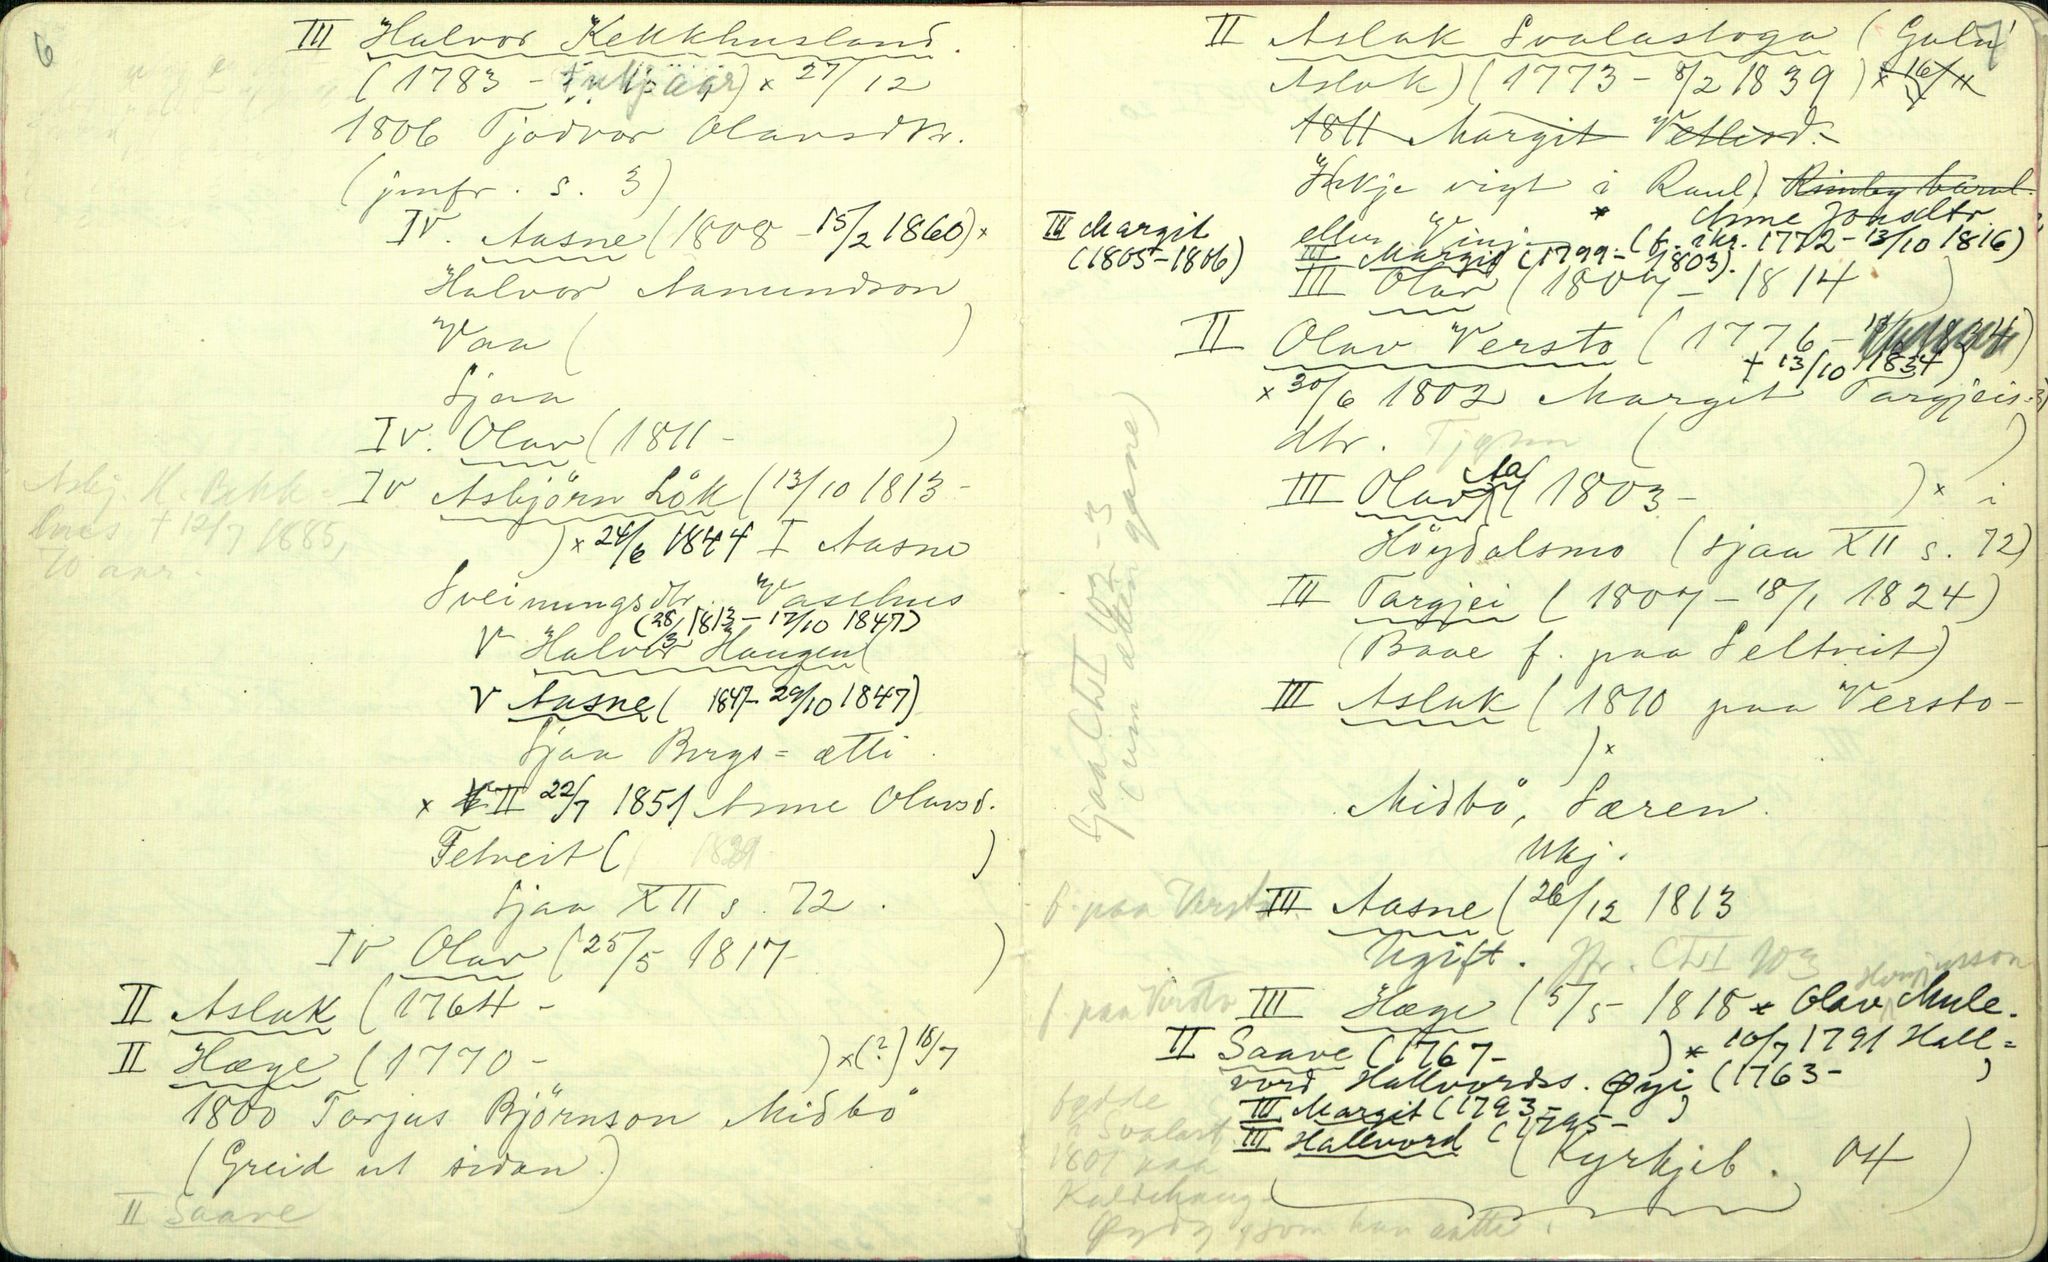 6
III Halvor Kekkhusland.
(1783 - ) × 27/12
1806 Tjodvor Olavsdtr.
(jmfr. s. 3)
IV. Aasne (1808 - 15/2 1860) ×
Halvor Aamundson
Vaa ( )
Sjaa
IV. Olav (1811 - )
IV Asbjörn Lök (13/10 1813 -
) × 24/6 1844 I Aasne
Sveinungsdtr. Vaashus
(28/3 1813 - 17/10 1847)
V Halvor Haugen (
V Aasne ( 1847 - 29/10 1847)
Sjaa Bergs = ætti.
× II 22/7 1851 Anne Olavsd.
Felveit ( 1829 )
Sjaa XII s. 72.
IV Olav (25/5 1817 - )
II Aslak (1764 -
II Hæge (1770 - ) × (?) 18/7
1800 Torjus Björnson Midbö
(Greid ut sidan)
II Saave
Asbj. H. Bekk-
hus † 12/7 1885,
70 aar.
7
II Aslak Svalastoga (Galn'
Aslak) (1773 - 8/2 1839) × 16/11
1811 Margit Vetlesd.
Ikkje vigt i Raul.
× Anne Jonsdtr.
eller Vinje (f. ikr. 1772 - 13/10 1816)
III Margit
(1805 - 1806)
III Margit (1799 - 1803).
III Olav (1807 - 1814 )
II Olav Versto (1776 -
† 13/10 1834)
× 30/6 1802 Margit Targjeis-
dtr. ( )
III Olav (1803 - ) × i
Höydalsmo (sjaa XII s. 72)
III Targjei (1807 - 18/1 1824)
(Baae f. paa Seltveit)
III Aslak (1810 paa Versto -
) ×
Midbö, Særen.
Ukj.
f. paa Versto III Aasne (26/12 1813
Ugift.
f. paa Versto III Hæge (5/5 - 1818 × Olav Mule.
II Saave (1767 - ) × 10/7 1791 Hall=
vord Hallvordss. Øyi (1763 - )
III Margit (1793 - )
III Hallvord (1795 -
(Kyrkjeb. 04 )
bydde
Svalast.
1801 paa
som han aatte.